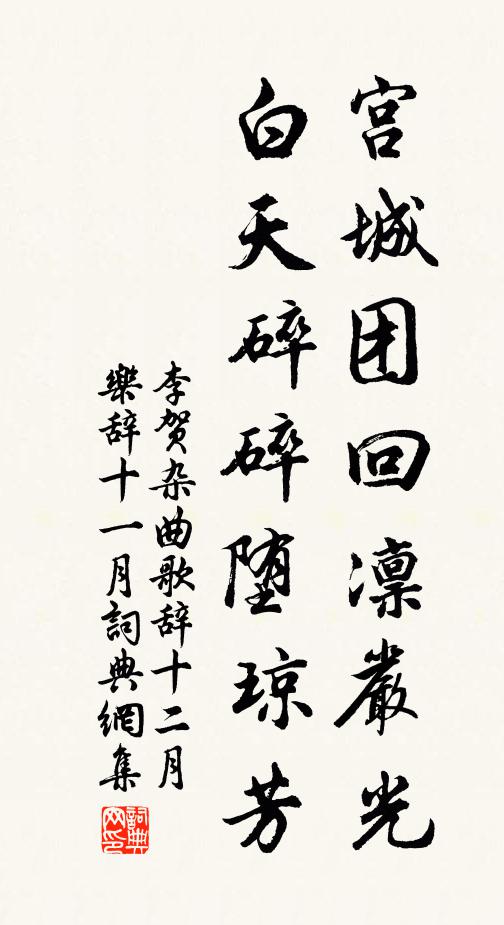 宫城团回凛嚴光
白天碎碎堕琼芳
李贺杂曲歌辞十二月
樂辞十一月詞典網集
詞典网印